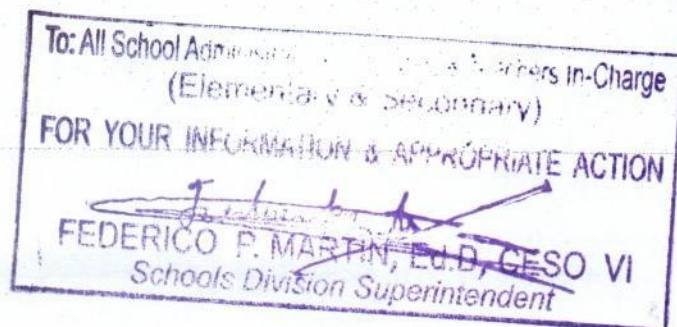 To: All School & Teachers In-Charge
(Elementary & Secondary)
FOR YOUR INFORMATION & APPROPRIATE ACTION
FEDERICO P. MARTIN, Ed.D, CESO VI
Schools Division Superintendent